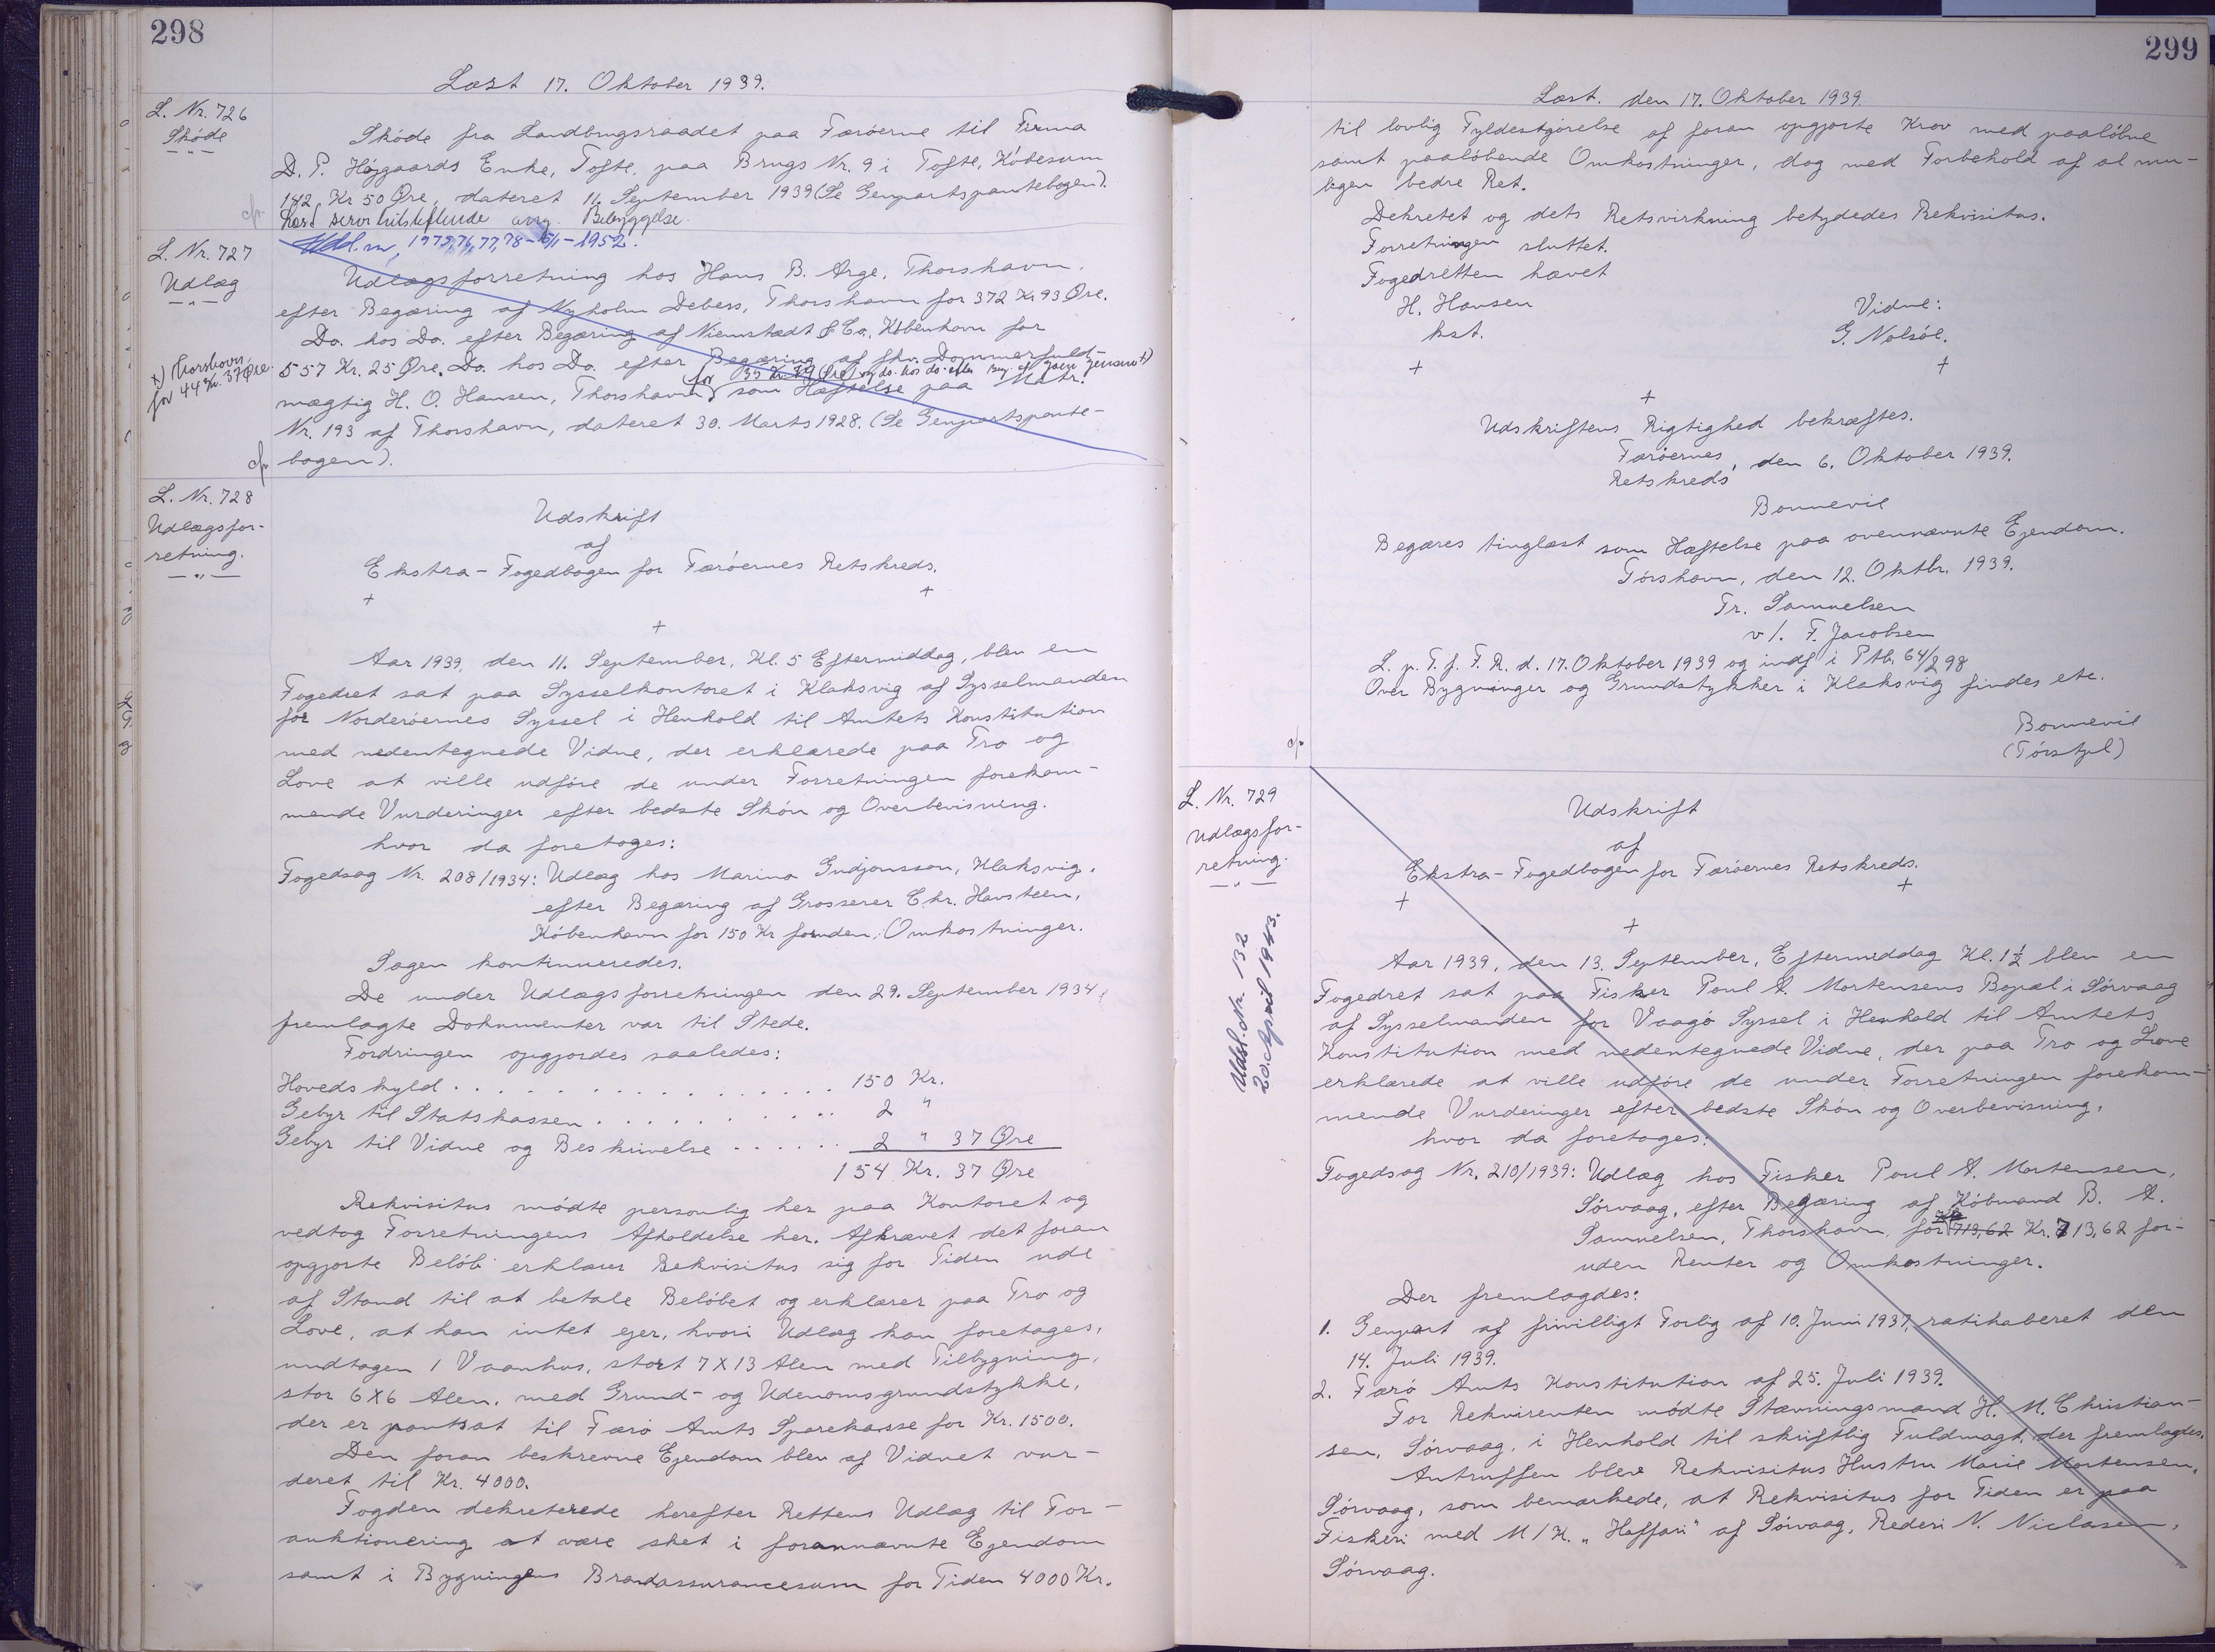 298
Læst 17. Oktober 1939.
L. Nr. 726
Sköde
Sköde fra Landbrugsraadet paa Færöerne til Firma
D. P. Höjgaards Enke, Tofte, paa Brugs Nr. 9 i Tofte, Köbesum
142 Kr 50 Øre, dateret 11. September 1939 (Se Genpartspantebogen).
servitutstiftende ang. Bebyggelse.
L. Nr. 727
Udlæg
1975,76,77,78 - 15/1 - 1952.
Udlægsforretning hos Hans B. Arge, Thorshavn,
efter Begæring af Nyholm Debess, Thorshavn for 372 Kr 93 Øre.
Do. hos Do. efter Begæring af Niemstadt & Co., Köbenhavn for
557 Kr. 25 Øre. Do. hos Do. efter Begæring af fhv. Dommerfuld-
mægtig H. O. Hansen, Thorshavn som Hæftelse paa Matr.
x) Thorshavn,
for 44 Kr. 37 Øre.
Nr. 193 af Thorshavn, dateret 30. Marts 1928. (Se Genpartspante-
bogen).
L. Nr. 728
Udlægsfor-
retning.
Udskrift
af
Ekstra-Fogedbogen for Færöernes Retskreds.
+ +
+
Aar 1939, den 11. September, Kl. 5 Eftermiddag, blev en
Fogedret sat paa Sysselkontoret i Klaksvig af Sysselmanden
for Norderöernes Syssel i Henhold til Amtets Konstitution
med nedentegnede Vidne, der erklærede paa Tro og
Love at ville udföre de under Forretningen forekom-
mende Vurderinger efter bedste Skön og Overbevisning.
hvor da foretoges:
Fogedsag Nr. 208/1934: Udlæg hos Marino Gudjonsson, Klaksvig,
efter Begæring af Grosserer Chr. Havsteen,
Köbenhavn for 150 Kr foruden Omkostninger.
Sagen kontinueredes.
De under Udlægsforretningen den 29. September 1934
fremlagte Dokumenter var til Stede.
Fordringen opgjordes saaledes:
Hovedskyld . . . . . . . . . . 150 Kr.
Gebyr til Statskassen . . . . . . . . 2 "
Gebyr til Vidne og Beskrivelse . . . . . 2 " 37 Øre
154 Kr. 37 Øre
Rekvisitus mödte personlig her paa Kontoret og
vedtog Forretningens Afholdelse her. Afkrævet det foran
opgjorte Belöb erklærer Rekvisitus sig for Tiden ude
af Stand til at betale Belöbet og erklærer paa Tro og
Love, at han intet ejer, hvori Udlæg kan foretages,
undtagen 1 Vaanhus, stort 7 X 13 Alen med Tilbygning,
stor 6X6 Alen, med Grund- og Udenomsgrundstykke,
der er pantsat til Færö Amts Sparekasse for Kr. 1500.
Den foran beskrevne Ejendom blev af Vidnet vur-
deret til Kr. 4000.
Fogden dekreterede herefter Rettens Udlæg til For-
auktionering at være sket i forannævnte Ejendom
samt i Bygningens Brandassurancesum for Tiden 4000 Kr.
299
Læst. den 17. Oktober 1939.
til lovlig Fyldestgörelse af foran opgjorte Krav med paalöbne
samt paalöbende Omkostninger, dog med Forbehold af al mu-
ligen bedre Ret.
Dekretet og dets Retsvirkning betydedes Rekvisitus.
Forretningen sluttet.
Fogedretten hævet
H. Hansen
kst.
Vidne:
G. Nolsöe.
+ +
+
Udskriftens Rigtighed bekræftes.
Færöernes
Retskreds, den 6. Oktober 1939.
Bonnevie
Begæres tinglæst som Hæftelse paa ovennævnte Ejendom.
Tórshavn, den 12. Oktbr. 1939.
Tr. Samuelsen
v/. F. Jacobsen
L. p. T. f. F. R. d. 17. Oktober 1939 og indf i Ptb. 64/298
Over Bygninger og Grundstykker i Klaksvig findes etc.
Bonnevie
L. Nr. 729
Udlægsfor-
retning.
Udsl. Nr. 132
20. April 1943.
Udskrift
af
Ekstra-Fogedbogen for Færöernes Retskreds.
+ +
+
Aar 1939, den 13. September, Eftermiddag Kl. 1½ blev en
Fogedret sat paa Fisker Poul A. Mortensens Bopæl i Sörvaag
af Sysselmanden for Vaagö Syssel i Henhold til Amtets
Konstitution med nedentegnede Vidne, der paa Tro og Love
erklærede at ville udföre de under Forretningen forekom-
mende Vurderinger efter bedste Skön og Overbevisning.
hvor da foretoges:
Fogedsag Nr. 210/1939: Udlæg hos Fisker Poul A. Mortensen,
Sörvaag, efter Begæring af Köbmand B. A.
Samuelsen, Thorshavn, for 713,62 Kr. 713,62 for-
uden Renter og Omkostninger.
Der fremlagdes:
1. Genpart af frivilligt Forlig af 10. Juni 1937, ratihaberet den
14. Juli 1939.
2. Færö Amts Konstitution af 25. Juli 1939.
For Rekvirenten mödte Stævningsmand H. M. Christian-
sen, Sörvaag, i Henhold til skriftlig Fuldmagt, der fremlagdes.
Antruffen blev Rekvisitus Hustru Marie Mortensen,
Sörvaag, som bemærkede, at Rekvisitus for Tiden er paa
Fiskeri med M/K. "Haffari" af Sörvaag, Rederi N. Niclasen,
Sörvaag.